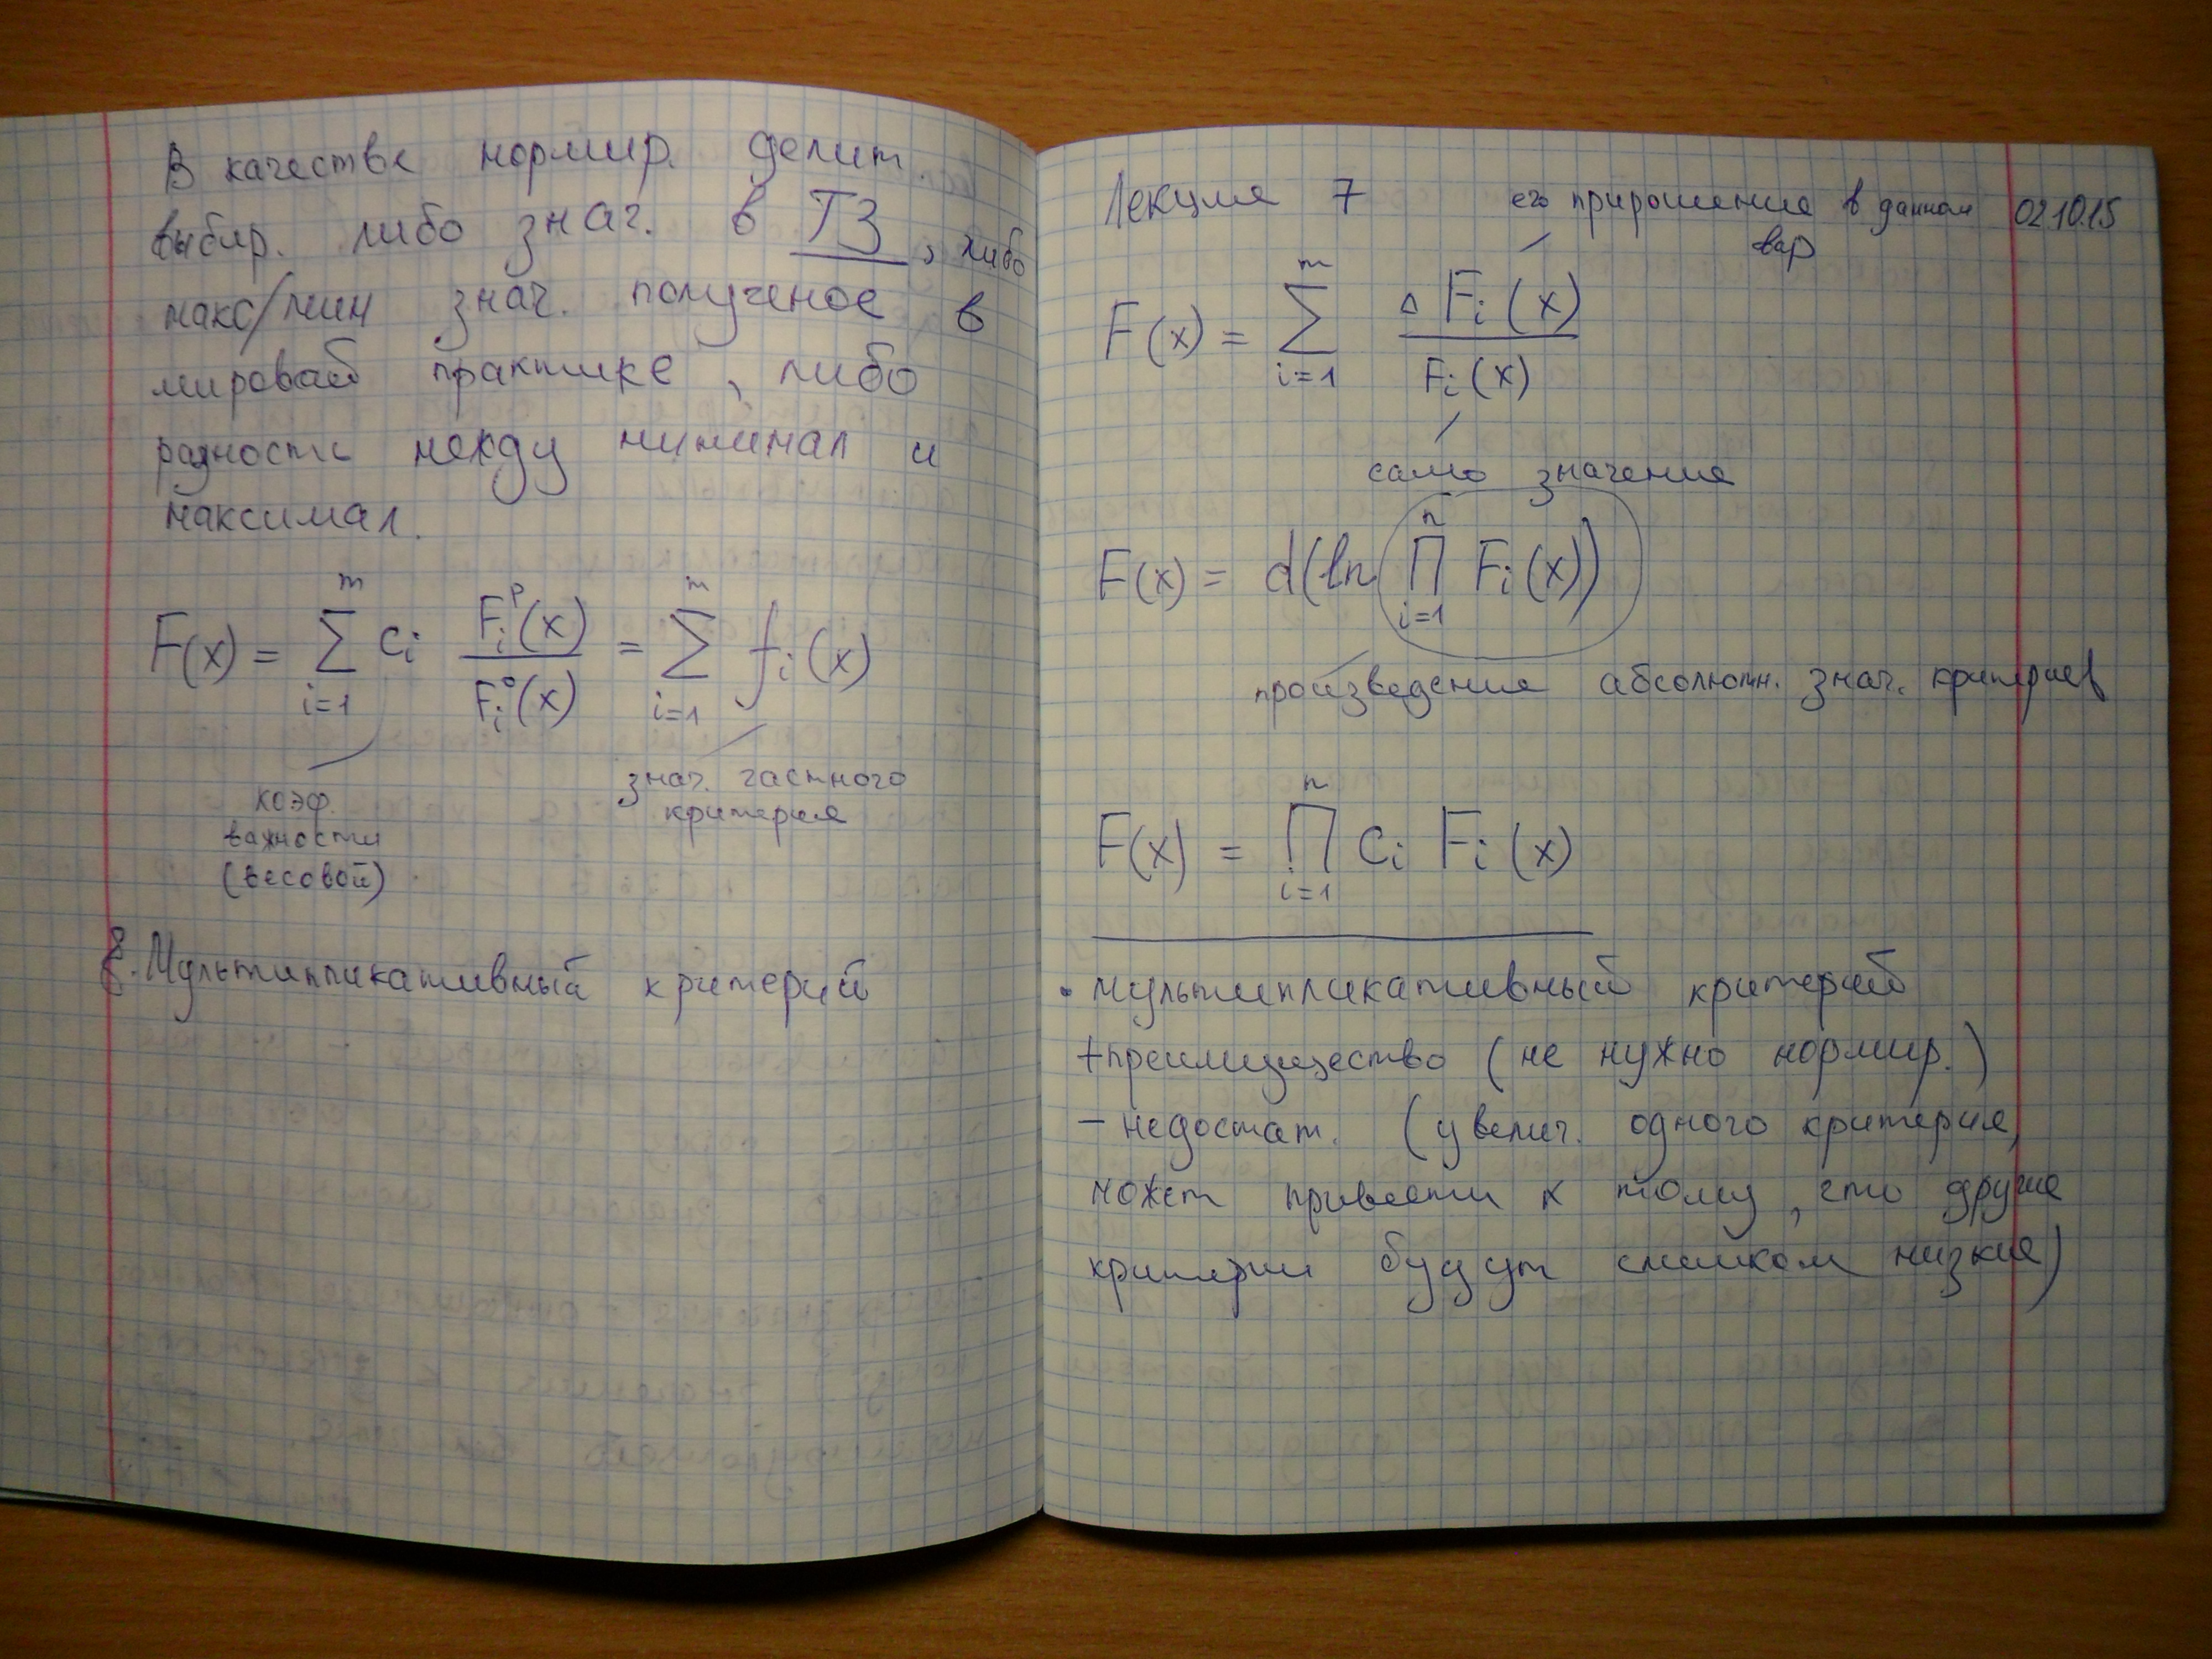 В качестве нормир. делит.
выбир. либо знач. в ТЗ, либо
макс/мин знач. полученое в
мировай практике, либо
разность между минимал и
максимал.
F(x) = ∑_{i=1}^{m} c_i F_i^p(x) / F_i^o(x) = ∑_{i=1}^{m} f_i(x)
коэф.
важности
(весовой)
знач. частного
критерия
8. Мультипликативный критерий
Лекция 7
его прирощение в данном
вар
02.10.15
F(x) = ∑_{i=1}^{m} Δ F_i(x) / F_i(x)
само значение
F(x) = d(ln ∏_{i=1}^{n} F_i(x))
произведение абсолютн. знач. критериев
F(x) = ∏_{i=1}^{n} c_i F_i(x)
• мультипликативный критерий
+ преимущество (не нужно нормир.)
– недостат. (увелич. одного критерия,
может привести к тому, что другие
критерии будут слишком низкие)